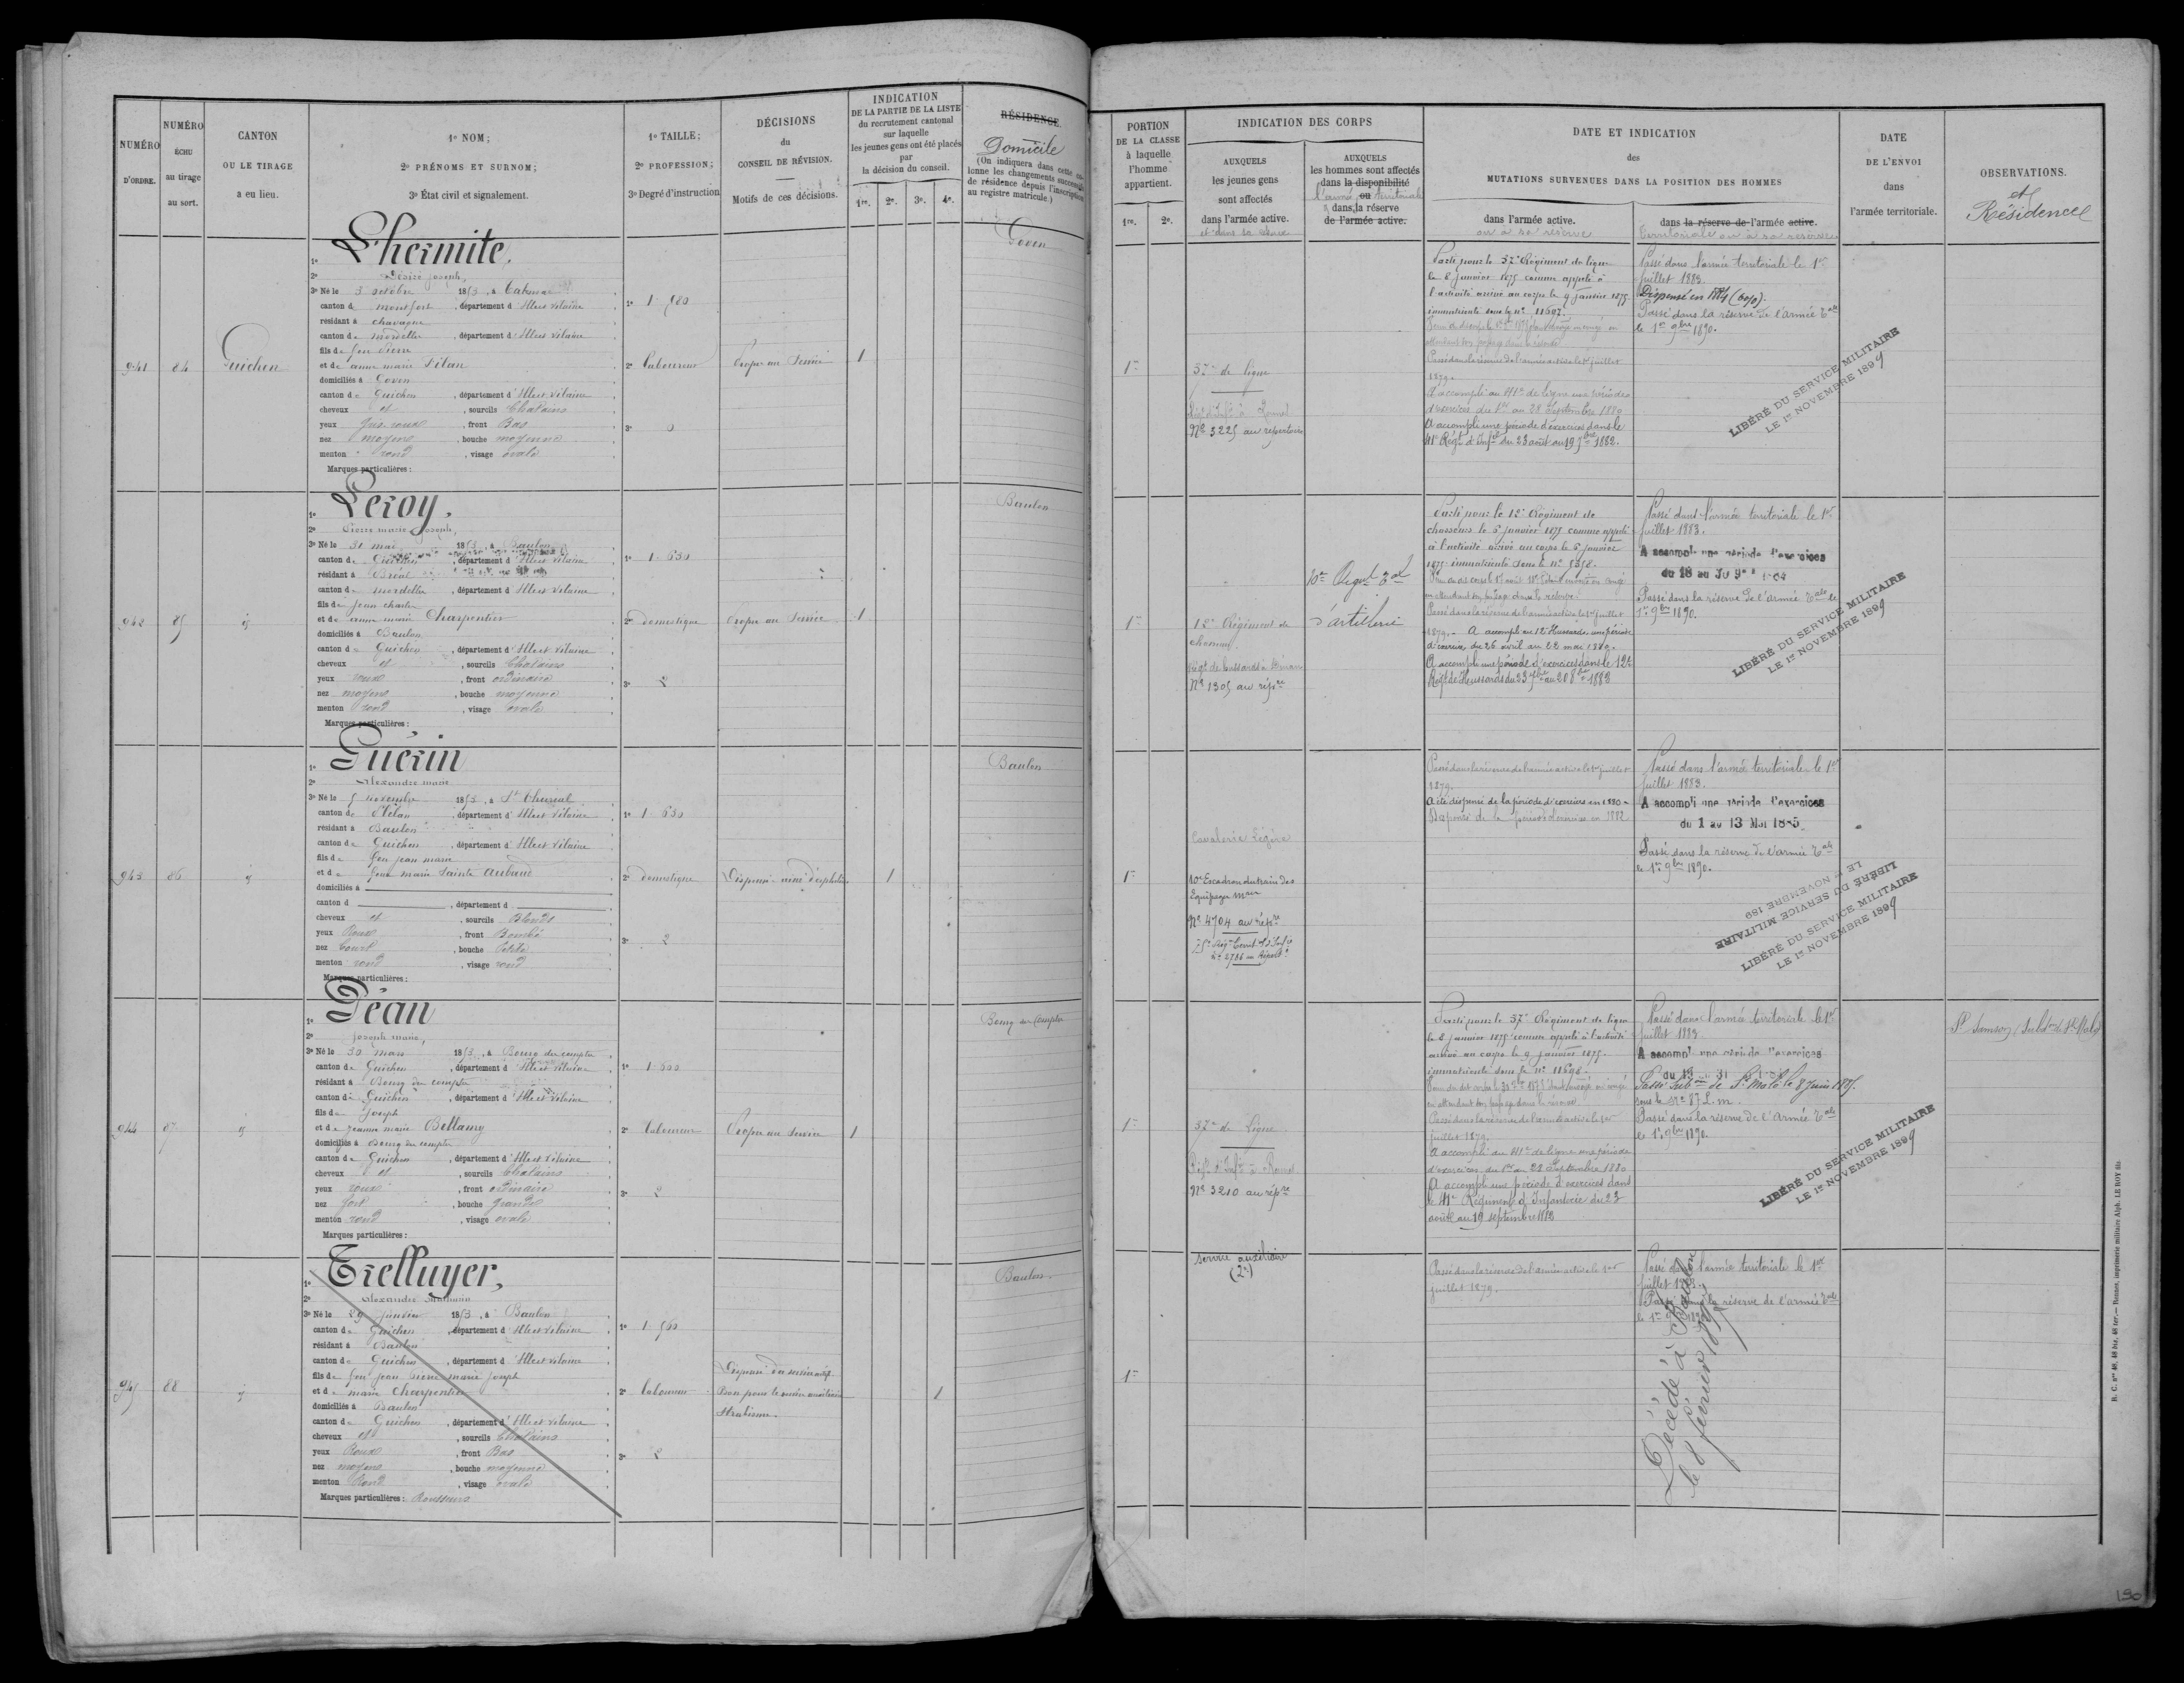 NUMÉRO
D'ORDRE.
NUMÉRO
ÉCHU
au tirage
au sort.
CANTON
OU LE TIRAGE
a eu lieu.
1º NOM;
2º PRÉNOMS ET SURNOM;
3º État civil et signalement.
1º TAILLE;
2º PROFESSION;
3º Degré d'instruction
DÉCISIONS
du
CONSEIL DE RÉVISION.
Motifs de ces décisions.
INDICATION
DE LA PARTIE DE LA LISTE
du recrutement cantonal
sur laquelle
les jeunes gens ont été placés
par
la décision du conseil.
1re. 2e. 3e. 4e.
RÉSIDENCE.
Domicile
(On indiquera dans cette colonne les changements successifs
de résidence depuis l'inscription
au registre matricule.)
PORTION
DE LA CLASSE
à laquelle
l'homme
appartient.
1re. 2e.
INDICATION DES CORPS
AUXQUELS
les jeunes gens
sont affectés
dans l'armée active.
et dans la réserve
AUXQUELS
les hommes sont affectés
dans la disponibilité
ou
l'armée territoriale
dans la réserve
de l'armée active.
DATE ET INDICATION
des
MUTATIONS SURVENUES DANS LA POSITION DES HOMMES
dans l'armée active.
ou à sa réserve
dans la réserve de l'armée active.
territoriale ou à sa réserve
DATE
DE L'ENVOI
dans
l'armée territoriale.
OBSERVATIONS.
et
Résidence
941 84 Guichen
1º Lhermite,
2º Désiré Joseph,
3º Né le 3 octobre 1853, à Talensac
canton de Montfort, département d'Ille et Vilaine
résidant à Chavagne
canton de Mordelles, département d'Ille et Vilaine
fils de feu Pierre
et de anne marie Pilan
domiciliés à Goven
canton de Guichen, département d'Ille et Vilaine
cheveux et, sourcils Chatains
yeux Gris roux, front Bas
nez moyen, bouche moyenne
menton rond, visage ovale
Marques particulières :
1º 1. 580
2º Laboureur
3º 0
Propre au Service 1
Goven
1re
37e de ligne
Régt d'Infie à Rennes
Nº 3225 au répertoire
Parti pour le 37e Régiment de ligne
le 8 janvier 1875 comme appelé à
l'activité arrivé au corps le 9 janvier 1875
immatriculé sous le nº 11697.
Passé dans la réserve de l'armée active le 1er juillet
1879.
A accompli au 41e de ligne une période
d'exercice du 1er au 28 Septembre 1880
A accompli une période d'exercices dans le
41e Régt d'Infie du 23 août au 19 7bre 1882.
Passé dans l'armée territoriale le 1er
juillet 1883.
Dispensé en 1884 (6070).
Passé dans la réserve de l'armée Tale
le 1er 9bre 1890.
LIBÉRÉ DU SERVICE MILITAIRE
LE 1er NOVEMBRE 1899
942 85 id
1º Leroy,
2º Pierre marie Joseph,
3º Né le 31 mai 1853, à Baulon
canton de Guichen, département d'Ille et Vilaine
résidant à Bréal
canton de mordelles, département d'Ille et Vilaine
fils de Jean charles
et de anne marie Charpentier
domiciliés à Baulon
canton de Guichen, département d'Ille et Vilaine
cheveux et, sourcils Chatains
yeux roux, front ordinaire
nez moyen, bouche moyenne
menton rond, visage ovale
Marques particulières :
1º 1. 630
2º domestique
3º 2
Propre au Service 1
Baulon
1re
12e Régiment de
chasseurs
Régt de hussards à Dinan
Nº 1305 au répre
10e Régt Tal
d'artillerie
Parti pour le 12e Régiment de
chasseurs le 5 janvier 1875 comme appelé
à l'activité arrivé au corps le 6 janvier
1875 immatriculé sous le nº 5358.
en attendant son passage dans la réserve.
Passé dans la réserve de l'armée active le 1er juillet
1879. - A accompli au 12e Hussards une période
d'exercices du 26 avril au 22 mai 1880.
A accompli une période d'exercices dans le 12e
Régt de Hussards du 23 7bre au 20 8bre 1882
Passé dans l'armée territoriale le 1er
juillet 1883.
A accompli une période d'exercices
du 18 au 30
Passé dans la réserve de l'armée Tale le
1er 9bre 1890.
LIBÉRÉ DU SERVICE MILITAIRE
LE 1er NOVEMBRE 1899
943 86 id
1º Guérin
2º Alexandre marie
3º Né le 5 novembre 1853, à St Thurial
canton de Plélan, département d'Ille et Vilaine
résidant à Baulon
canton de Guichen, département d'Ille et Vilaine
fils de feu Jean marie
et de feue marie Sainte Aubaud
domiciliés à
canton d , département d
cheveux et, sourcils Blonds
yeux Roux, front Bombé
nez Court, bouche Petite
menton rond, visage rond
Marques particulières :
1º 1. 630
2º domestique
3º 2
Dispensé ainé d'orphelins 1
Baulon
1re
Cavalerie Légère
10e Escadron du train des
Equipages mres
Nº 4704 au répre
Passé dans la réserve de l'armée active le 1er juillet
1879.
A été dispensé de la période d'exercices en 1880.
Dispensé de la période d'exercice en 1882
Passé dans l'armée territoriale le 1er
juillet 1883.
A accompli une période d'exercices
du 1 au 13 Mai 1885.
Passé dans la réserve de l'armée Tale
le 1er 9bre 1890.
LIBÉRÉ DU SERVICE MILITAIRE
LE 1er NOVEMBRE 189
LIBÉRÉ DU SERVICE MILITAIRE
LE 1er NOVEMBRE 1899
944 87 id
1º Déan
2º Joseph marie,
3º Né le 30 mars 1853, à Bourg des comptes
canton de Guichen, département d'Ille et Vilaine
résidant à Bourg des comptes
canton de Guichen, département d'Ille et Vilaine
fils de Joseph
et de jeanne marie Bellamy
domiciliés à Bourg des comptes
canton de Guichen, département d'Ille et Vilaine
cheveux et, sourcils Chatains
yeux roux, front ordinaire
nez fort, bouche grande
menton rond, visage ovale
Marques particulières :
1º 1. 600
2º Laboureur
3º 2
Propre au Service 1
Bourg des Comptes
1re
37e de Ligne
Régt d'Infie à Rennes
Nº 3210 au répre
Parti pour le 37e Régiment de ligne
le 8 janvier 1875 comme appelé à l'activité
arrivé au corps le 9 janvier 1875.
immatriculé sous le nº 11698.
Passé dans la réserve de l'armée active le 1er
juillet 1879.
A accompli au 41e de ligne une période
d'exercices du 1er au 28 Septembre 1880
A accompli une période d'exercices dans
le 41e Régiment d'Infanterie du 23
août au 19 septembre 1882
Passé dans l'armée territoriale le 1er
juillet 1883
A accompli une période d'exercices
Passé Subon de St Malo le 8 Juin 1885.
sous le nº 87 L. m.
Passé dans la réserve de l'Armée Tale
le 1er 9bre 1890
LIBÉRÉ DU SERVICE MILITAIRE
LE 1er NOVEMBRE 1899
St Samson, Subdon de St Malo
945 88 id
1º Trelluyer,
2º Alexandre Mathurin
3º Né le 29 janvier 1853, à Baulon
canton de Guichen, département d'Ille et Vilaine
résidant à Baulon
canton de Guichen, département d'Ille et Vilaine
fils de feu Jean Pierre marie Joseph
et de marie Charpentier
domiciliés à Baulon
canton de Guichen, département d'Ille et Vilaine
cheveux et, sourcils Chatains
yeux Roux, front Bas
nez moyen, bouche moyenne
menton Rond, visage ovale
Marques particulières : Rousseurs
1º 1. 560
2º Laboureur
3º 2
Dispensé du service actif.
Bon pour le service auxiliaire
Strabisme. 1
Baulon.
1re
Service auxiliaire
(2e)
Passé dans la réserve de l'armée active le 1er
juillet 1879.
Passé dans l'armée territoriale le 1er
juillet 1883.
Passé dans la réserve de l'armée Tale
le 1er 9bre 1890
Décédé à Baulon
le 8 février 1897
R. C. nos 48, 48 bis, 48 ter. — Rennes, imprimerie militaire Alph. LE ROY fils.
190